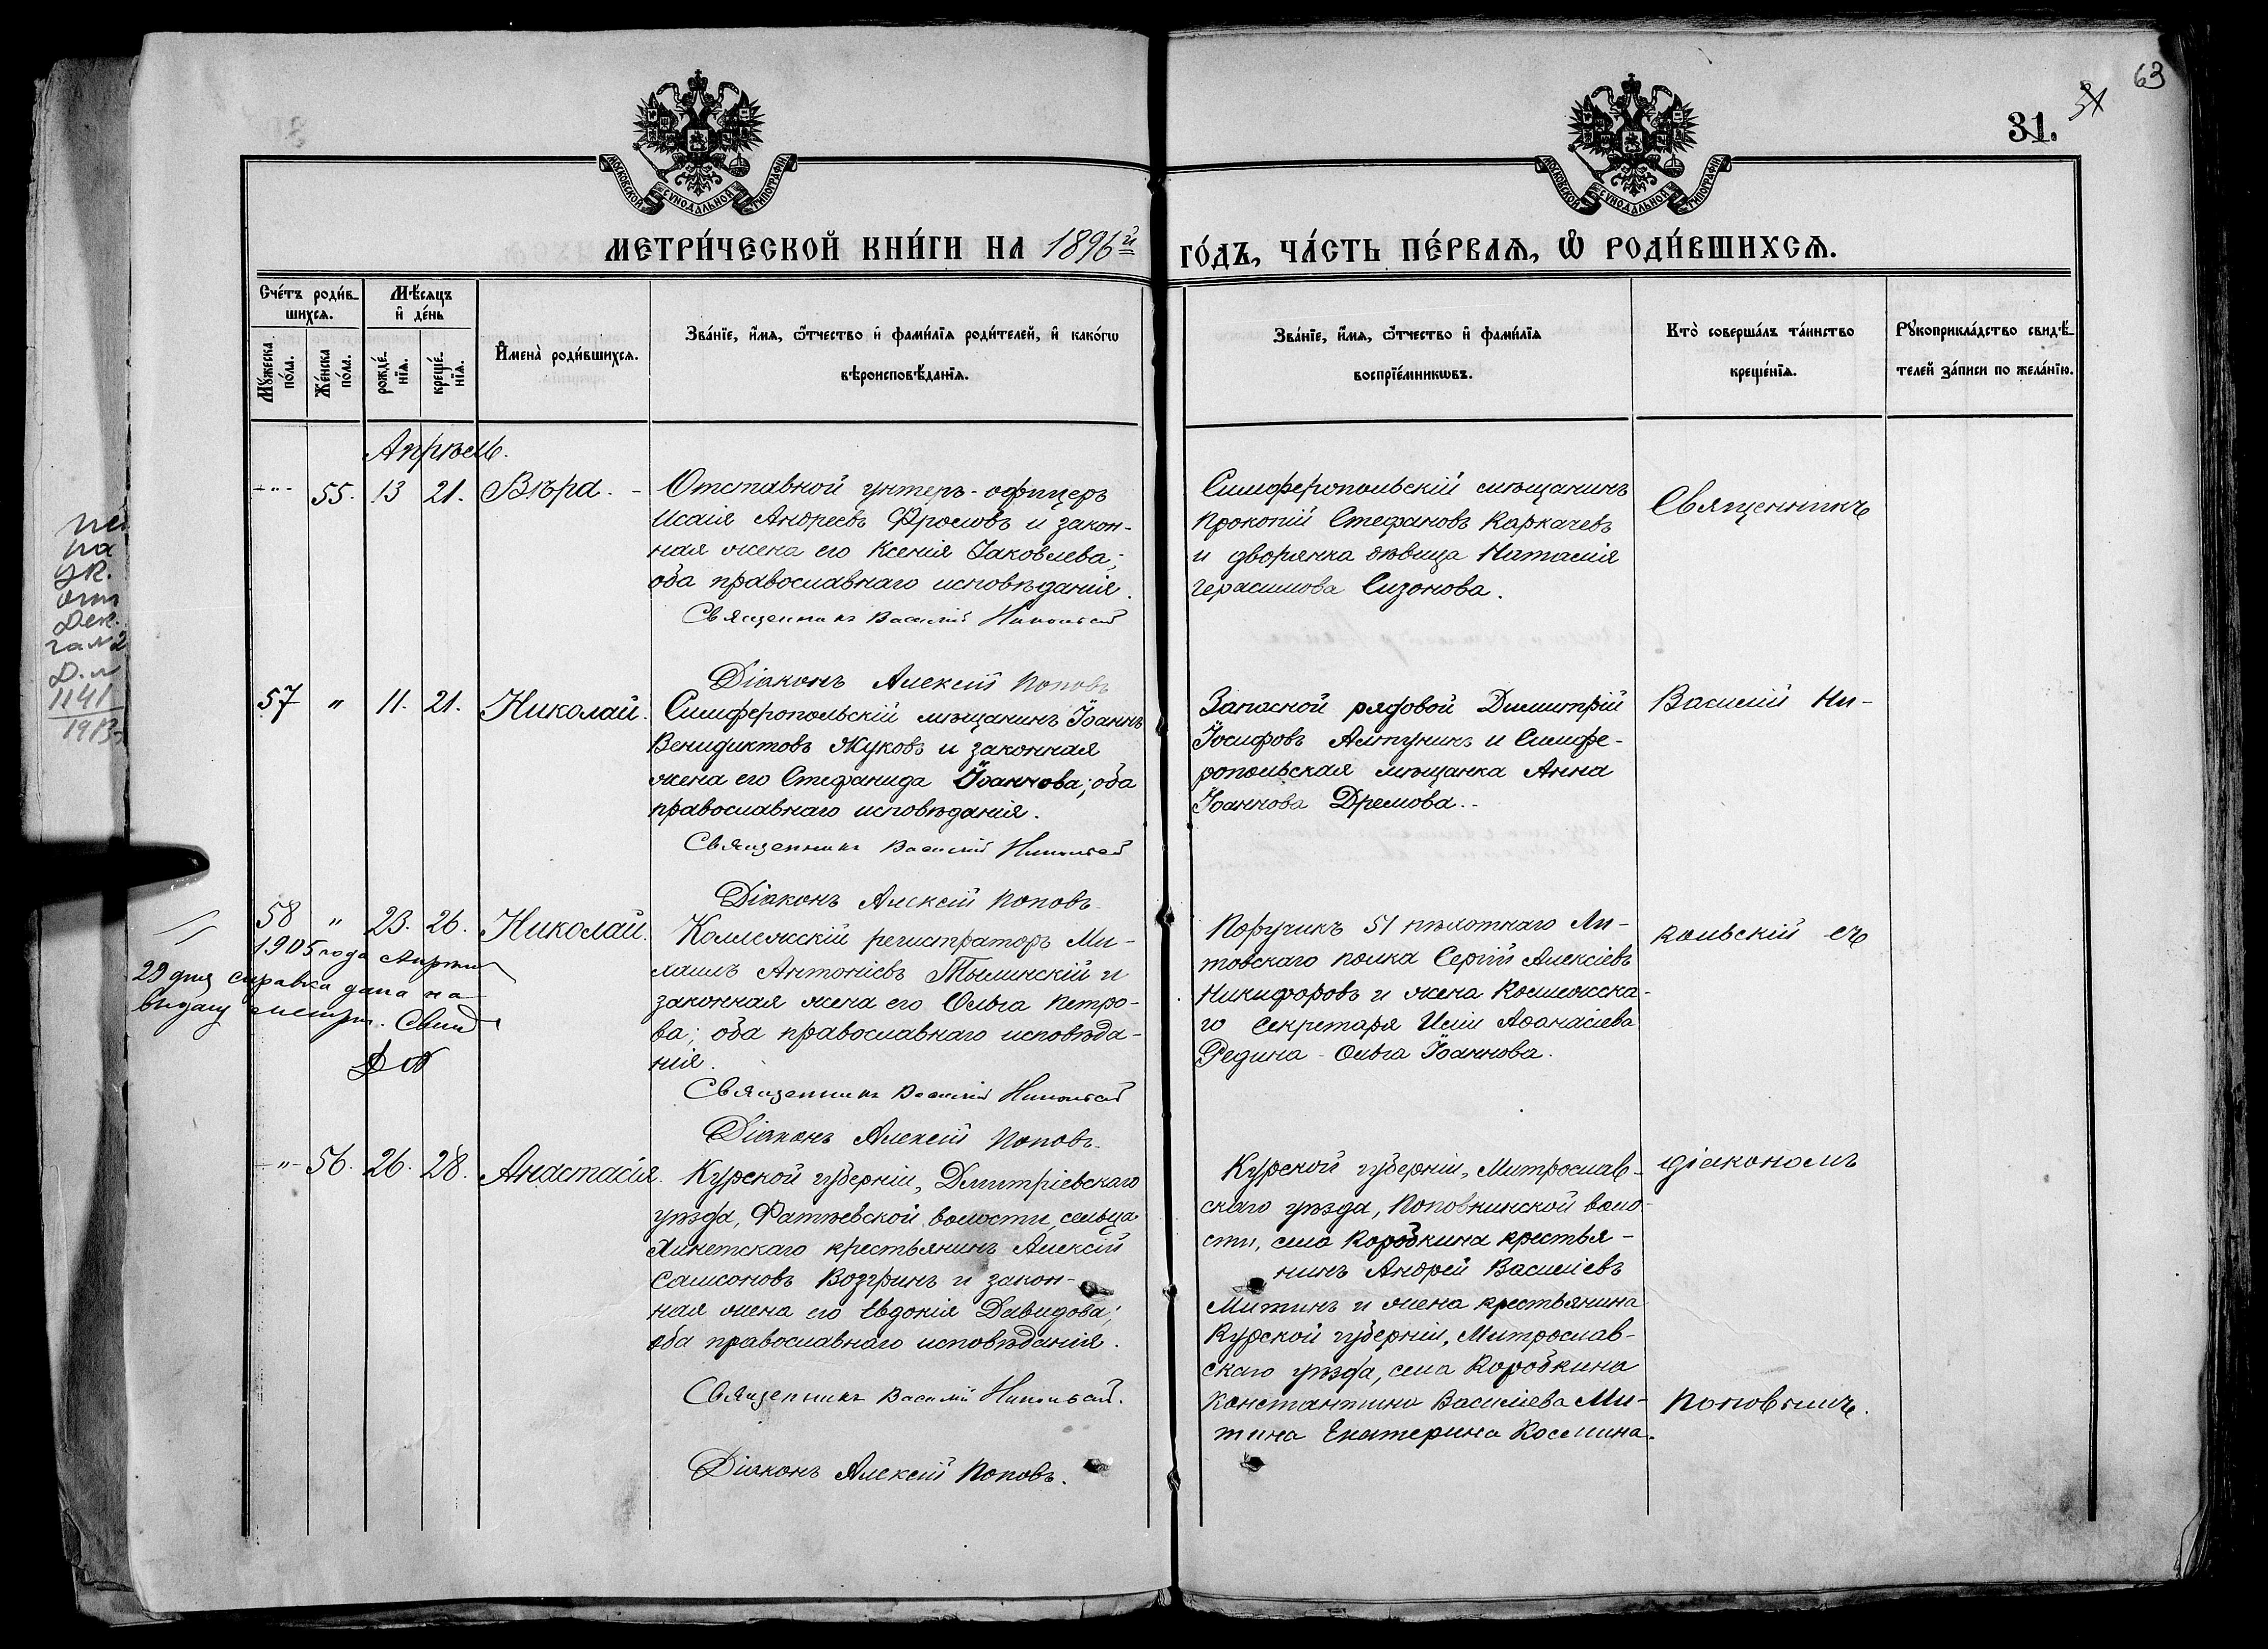 63
31.
МОСКОВСКОЙ СУНОДАЛЬНОЙ ТИПОГРАФІИ
МОСКОВСКОЙ СУНОДАЛЬНОЙ ТИПОГРАФІИ
МЕТРИ́ЧЕСКОЙ КНИ́ГИ НА 1896й
ГО́ДЪ, ЧА́СТЬ ПЕ́РВАѦ, Ѡ РОДИ́ВШИХСѦ.
Сче́тъ роди́в-
шихсѧ.
Мѣ́сѧцъ
и де́нь
Му́жеска
по́ла.
Же́нска
по́ла.
рожде́-
нїѧ.
креще́-
нїѧ.
Имена̀ роди́вшихсѧ.
Зва́нїе, и́мѧ, ѻ́тчество и фами́лїѧ роди́телей, и како́гѡ
вѣроисповѣ́данїѧ.
Зва́нїе, и́мѧ, ѻ́тчество и фами́лїѧ
воспрїе́мникѡвъ.
Кто̀ соверша́лъ та́инство
креще́нїѧ.
Рꙋкоприкла́дство свидѣ́-
телей за́писи по жела́нїю.
Апрѣль.
55. 13 21. Вѣра.
Отставной унтеръ-офицеръ
Исаія Андреевъ Фроловъ и закон-
ная жена его Ксенія Іаковлева;
оба православнаго исповѣданія.
Священникъ Василій Никольскій
Діаконъ Алексій Поповъ
Симферопольскій мѣщанинъ
Прокопій Стефановъ Каркачевъ
и дворянка дѣвица Наталія
Герасимова Сизонова.
Священникъ
57 " 11. 21. Николай.
Симферопольскій мѣщанинъ Іоаннъ
Венидиктовъ Жуковъ и законная
жена его Стефанида Іоаннова; оба
православнаго исповѣданія.
Священникъ Василій Никольскій
Діаконъ Алексій Поповъ
Запасной рядовой Димитрій
Іосифовъ Алтунинъ и Симфе-
ропольская мѣщанка Анна
Іоаннова Дремова.
Василій Ни-
58 " 23. 26. Николай.
1905 года Апрѣля
29 дня справка дана на
выдачу метри. Свид
Коллежскій регистраторъ Ми-
хаилъ Антоніевъ Тылинскій и
законная жена его Ольга Петро-
ва; оба православнаго исповѣда-
нія.
Священникъ Василій Никольскій
Діаконъ Алексій Поповъ.
Поручикъ 51 пѣхотнаго Ли-
товскаго полка Сергій Алексіевъ
Никифоровъ и жена Коллежска-
го Секретаря Иліи Аѳанасіева
Редина - Ольга Іоаннова.
кольскій съ
" 56. 26. 28. Анастасія.
Курской губерніи, Дмитріевскаго
уѣзда, Фатѣевской волости, сельца
крестьянинъ Алексій
Самсоновъ Возгринъ и закон-
ная жена его Евдокія Давидова;
оба православнаго исповѣданія.
Священникъ Василій Никольскій.
Діаконъ Алексій Поповъ.
Курской губерніи, Митрослав-
скаго уѣзда, Поповкинской воло-
сти, села Коробкина крестья-
нинъ Андрей Василіевъ
Митинъ и жена крестьянина
Курской губерніи, Митрослав-
скаго уѣзда, села Коробкина
Константина Василіева Ми-
тина Екатерина Космина.
діакономъ
Поповымъ.
1141
1913